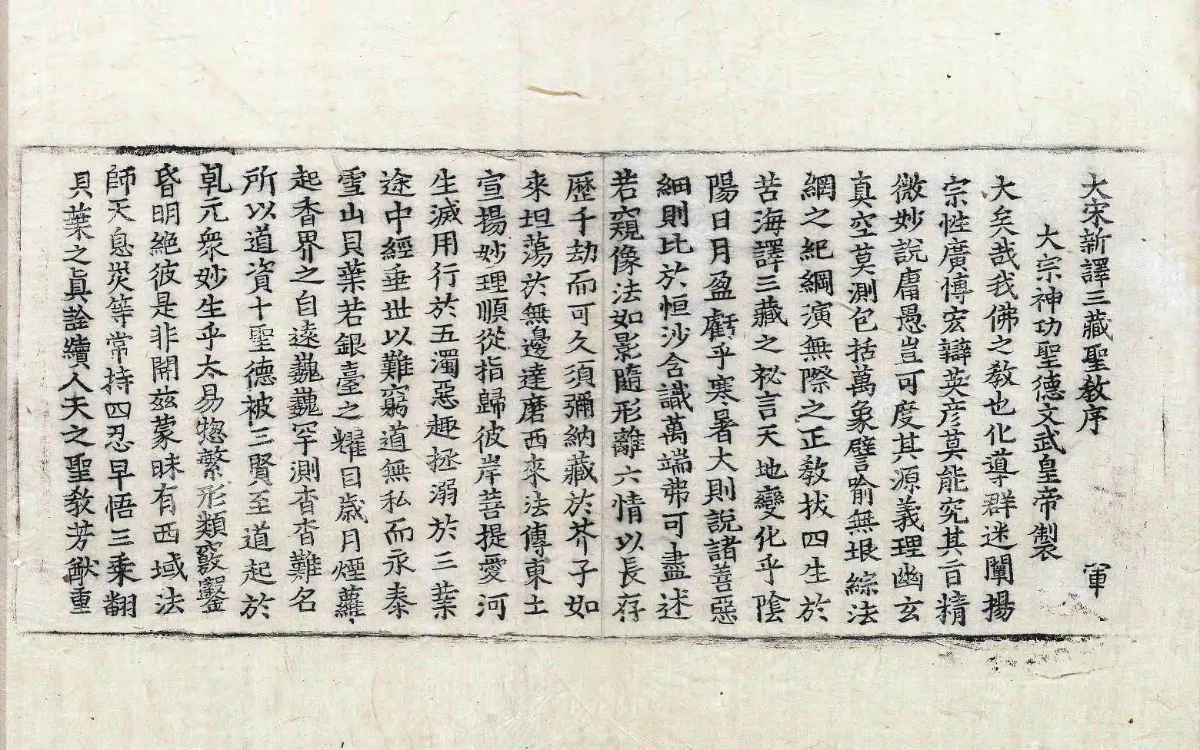 大宋新譯三藏聖教序
軍
大宗神功聖德文武皇帝製
大矣哉我佛之教也化導群迷闡揚
宗性廣博宏辯英彥莫能究其旨精
微妙說庸愚豈可度其源義理幽玄
真空莫測包括萬象譬喻無垠綜法
網之紀綱演無際之正教拔四生於
苦海譯三藏之祕言天地變化乎陰
陽日月盈虧乎寒暑大則說諸善惡
細則比於恒沙含識萬端弗可盡述
若窺像法如影隨形離六情以長存
歷千劫而可久須彌納藏於芥子如
來坦蕩於無邊達磨西來法傳東土
宣揚妙理順從指歸彼岸菩提愛河
生滅用行於五濁惡趣拯溺於三業
途中經垂世以難窮道無私而永泰
雪山貝葉若銀臺之耀目歲月煙蘿
起香界之自遠巍巍罕測杳杳難名
所以道資十聖德被三賢至道起於
乹元衆妙生乎太易惣繁形類竅鑿
昏明絕彼是非開兹蒙昧有西域法
師天息災等常持四忍早悟三乘翻
貝葉之真詮續人天之聖教芳猷重